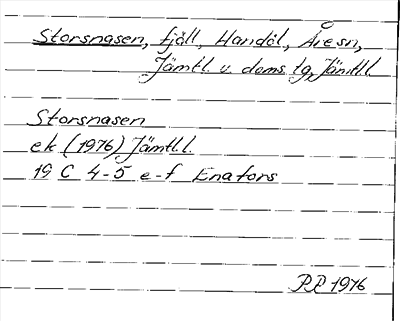 Storsnasen, fjäll, Handöl, Åresn,
Jämtl. v. doms. tg, Jämtl.l.
Storsnasen
ek (1976) Jämtl.l.
19 C 4-5 e-f Enafors
P.P. 1976